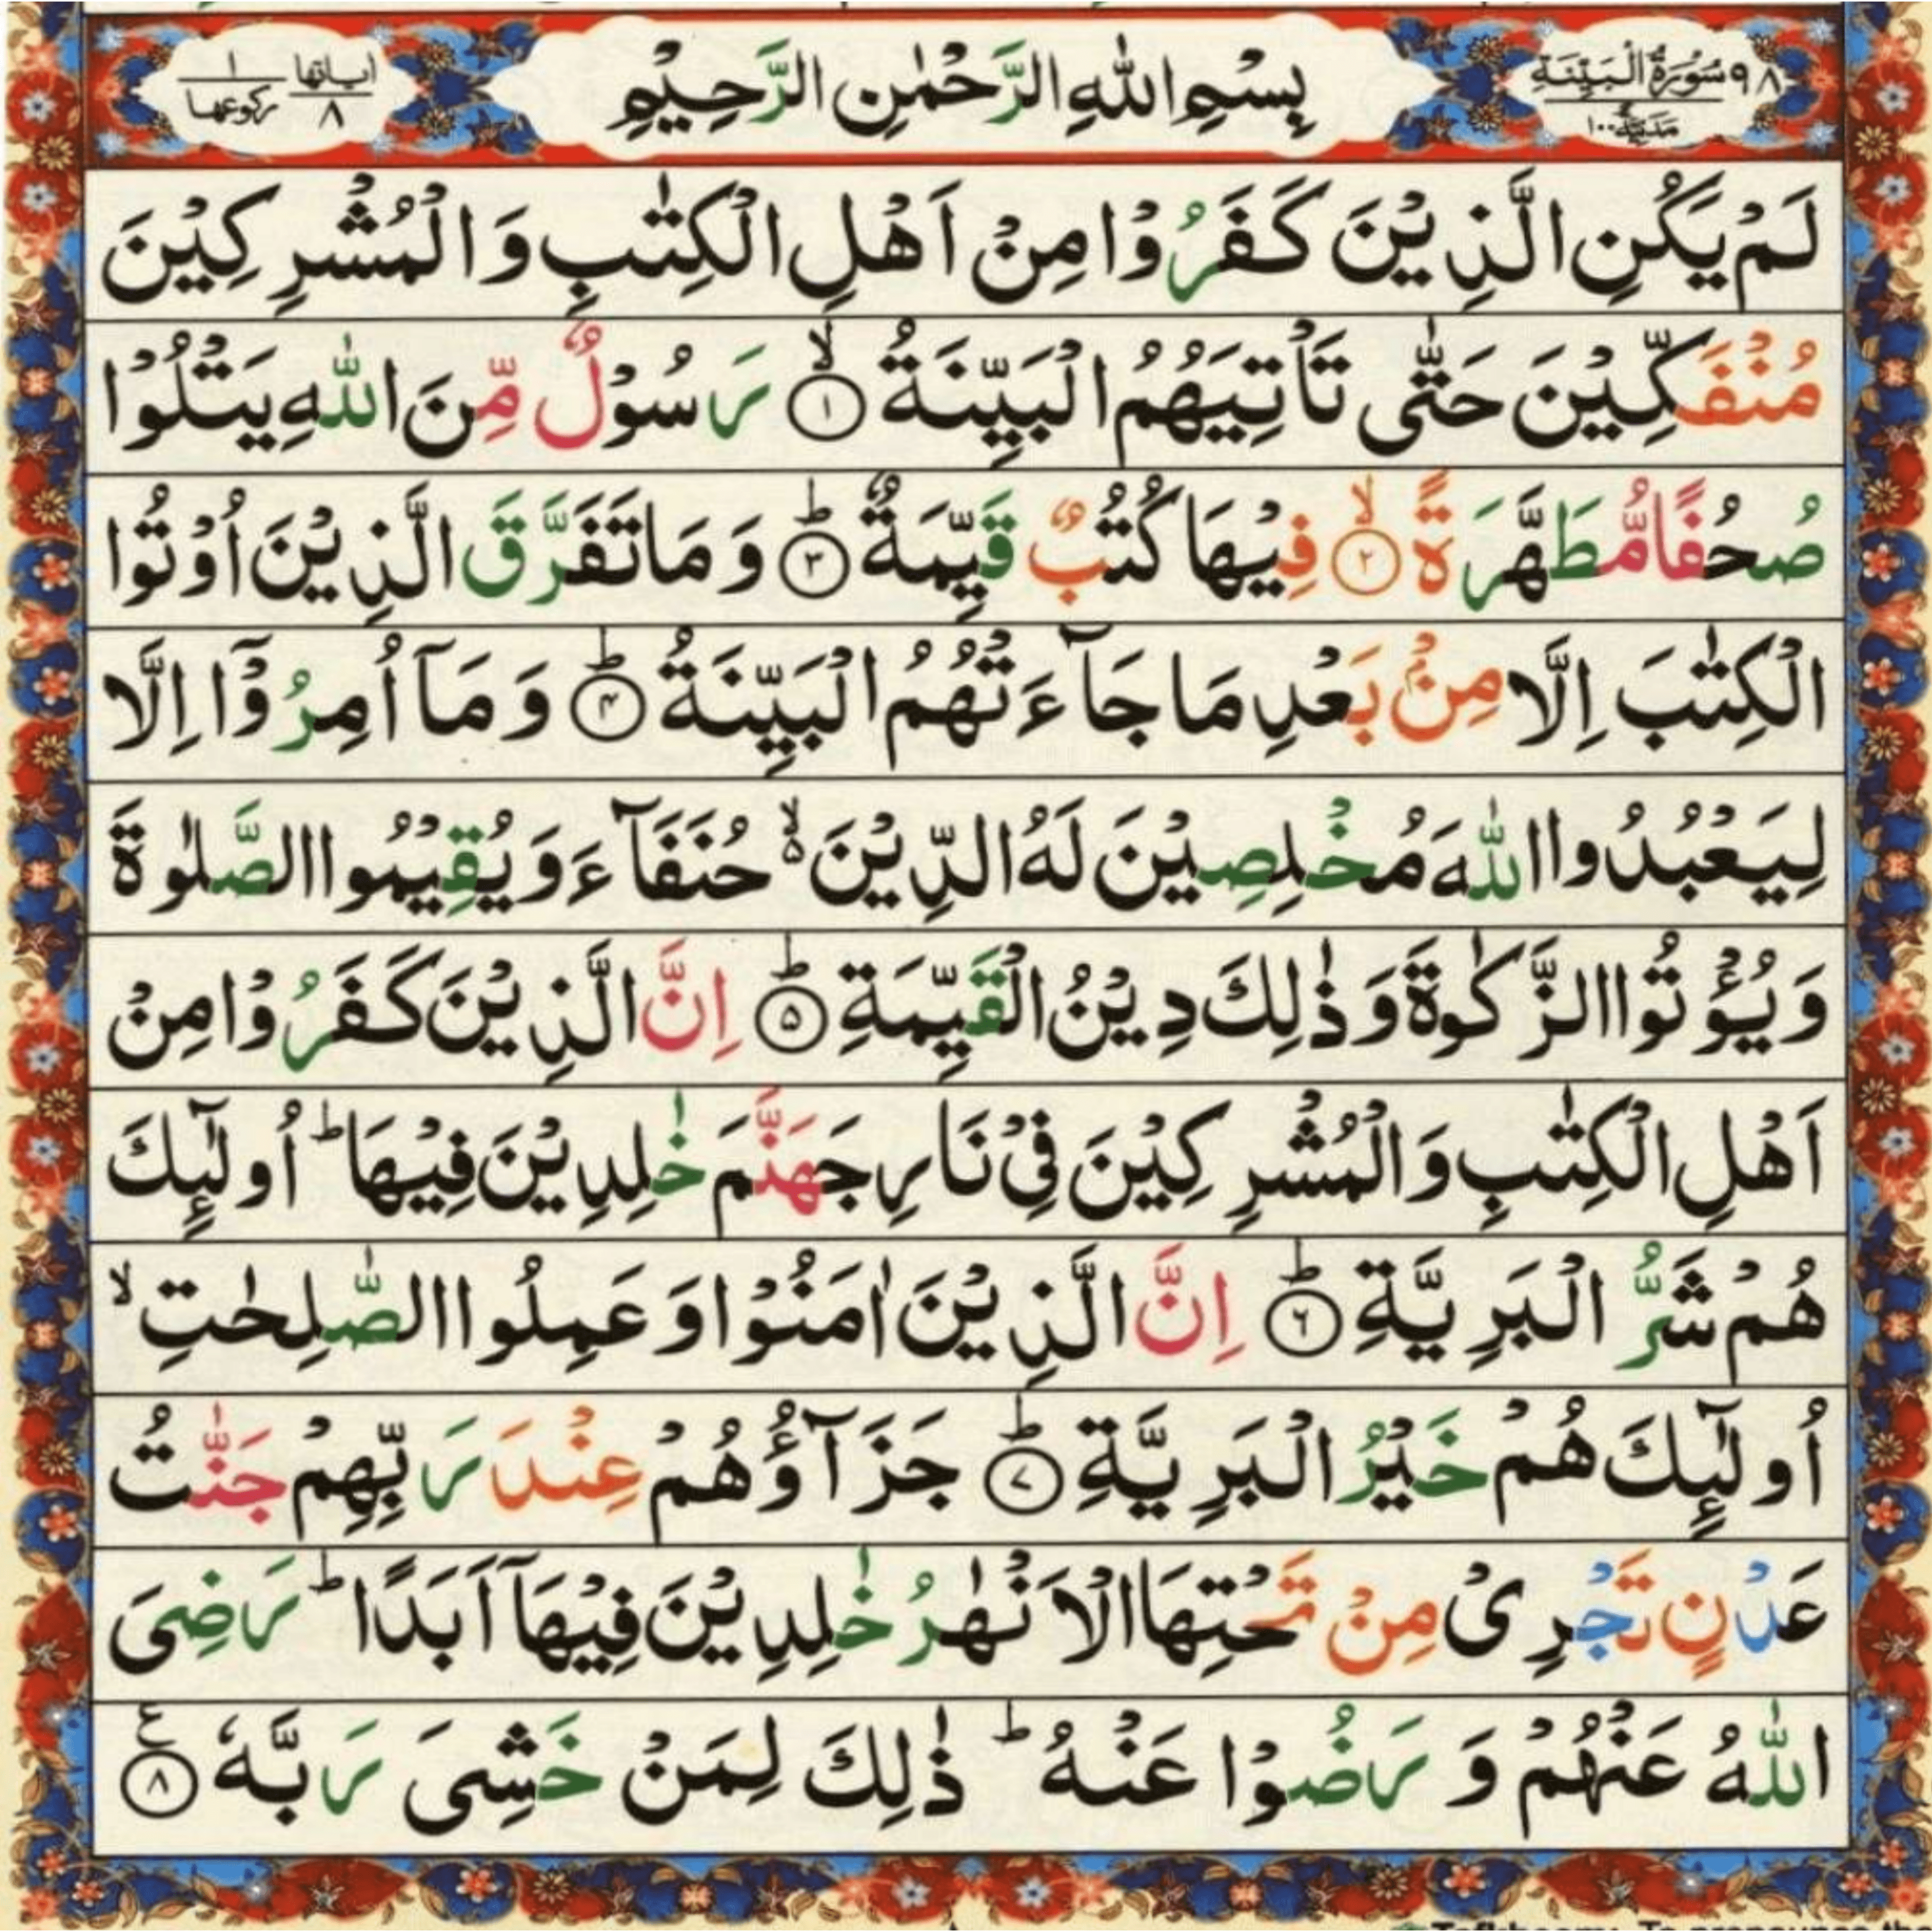 ٩٨ سُوْرَةُ الْبَيِّنَةِ مَدَنِيَّةٌ ١٠٠
بِسْمِ اللهِ الرَّحْمٰنِ الرَّحِيْمِ
اٰياتها ٨ ركوعها ١
لَمْ يَكُنِ الَّذِيْنَ كَفَرُوْا مِنْ اَهْلِ الْكِتٰبِ وَ الْمُشْرِكِيْنَ
مُنْفَكِّيْنَ حَتّٰى تَاْتِيَهُمُ الْبَيِّنَةُ ۙ﴿۱﴾ رَسُوْلٌ مِّنَ اللّٰهِ يَتْلُوْا
صُحُفًا مُّطَهَّرَةً ۙ﴿۲﴾ فِيْهَا كُتُبٌ قَيِّمَةٌ ؕ﴿۳﴾ وَ مَا تَفَرَّقَ الَّذِيْنَ اُوْتُوا
الْكِتٰبَ اِلَّا مِنْۢ بَعْدِ مَا جَآءَتْهُمُ الْبَيِّنَةُ ؕ﴿۴﴾ وَ مَاۤ اُمِرُوْۤا اِلَّا
لِيَعْبُدُوا اللّٰهَ مُخْلِصِيْنَ لَهُ الدِّيْنَ ۙ۬ حُنَفَآءَ وَ يُقِيْمُوا الصَّلٰوةَ
وَ يُؤْتُوا الزَّكٰوةَ وَ ذٰلِكَ دِيْنُ الْقَيِّمَةِ ؕ﴿۵﴾ اِنَّ الَّذِيْنَ كَفَرُوْا مِنْ
اَهْلِ الْكِتٰبِ وَ الْمُشْرِكِيْنَ فِيْ نَارِ جَهَنَّمَ خٰلِدِيْنَ فِيْهَا ؕ اُولٰٓئِكَ
هُمْ شَرُّ الْبَرِيَّةِ ؕ﴿۶﴾ اِنَّ الَّذِيْنَ اٰمَنُوْا وَ عَمِلُوا الصّٰلِحٰتِ ۙ
اُولٰٓئِكَ هُمْ خَيْرُ الْبَرِيَّةِ ؕ﴿۷﴾ جَزَآؤُهُمْ عِنْدَ رَبِّهِمْ جَنّٰتُ
عَدْنٍ تَجْرِيْ مِنْ تَحْتِهَا الْاَنْهٰرُ خٰلِدِيْنَ فِيْهَاۤ اَبَدًا ؕ رَضِيَ
اللّٰهُ عَنْهُمْ وَ رَضُوْا عَنْهُ ؕ ذٰلِكَ لِمَنْ خَشِيَ رَبَّهٗ ﴿۸﴾